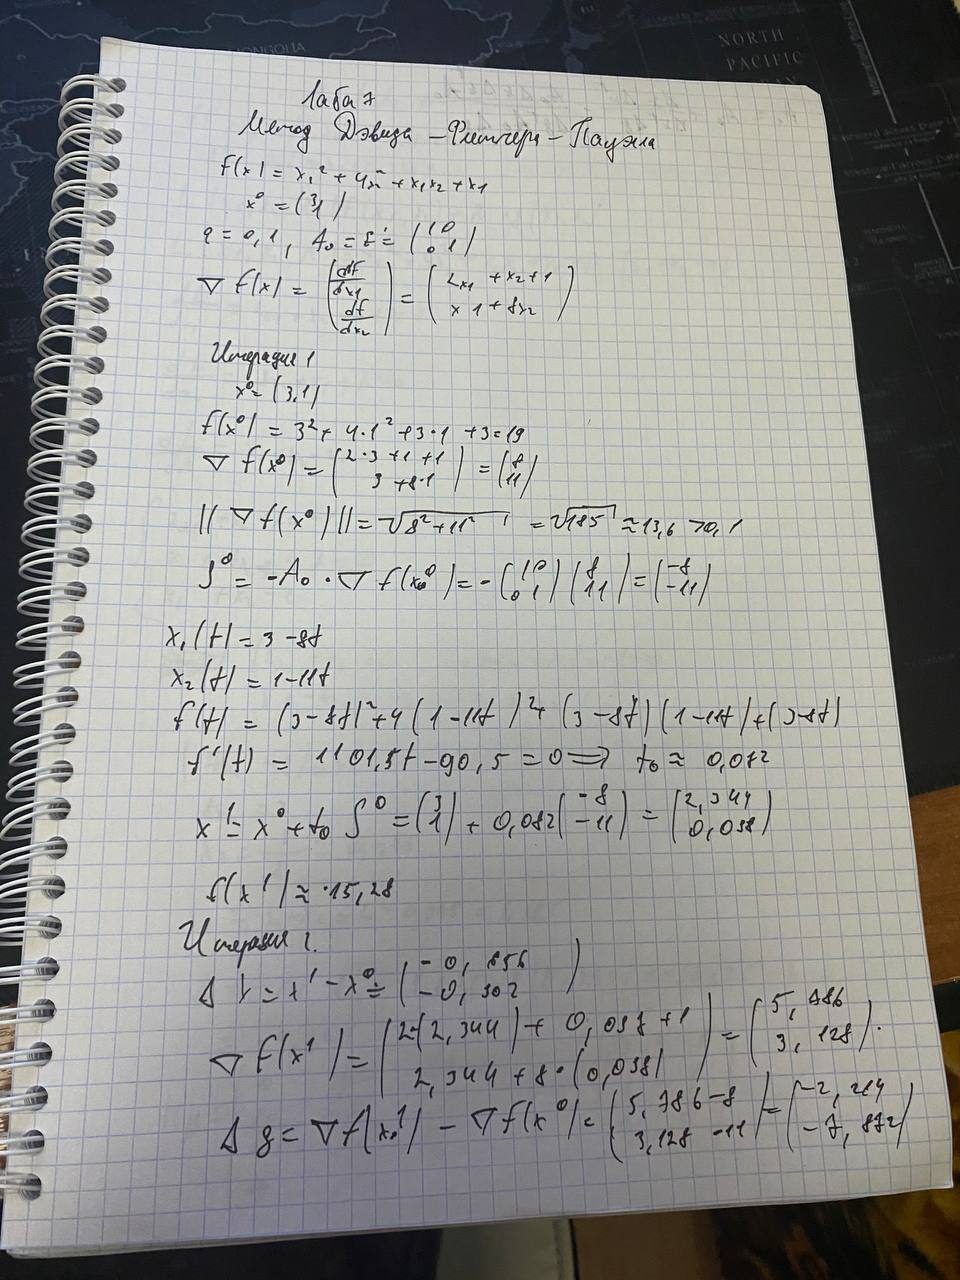 Лаба 7
Метод Дэвида – Флетчера – Пауэлла
f(x) = x₁² + 4x₂² + x₁x₂ + x₁
x⁰ = (3 1)
ε = 0,1, A₀ = E = (1 0 0 1)
∇ f(x) = (df/dx₁ df/dx₂) = (2x₁ + x₂ + 1 x1 + 8x₂)
Итерация 1
x⁰ = (3,1)
f(x⁰) = 3² + 4·1² + 3·1 + 3 = 19
∇ f(x⁰) = (2·3 +1 +1 3 +8·1) = (8 11)
|| ∇ f(x⁰) || = √8² + 11² = √185 ≈ 13,6 > 0,1
S⁰ = -A₀ · ∇ f(x⁰) = -(1 0 0 1)(8 11) = (-8 -11)
x₁(t) = 3 - 8t
x₂(t) = 1 - 11t
f(t) = (3 - 8t)² + 4(1 - 11t)² + (3 - 8t)(1 - 11t) + (3 - 8t)
f'(t) = 1101,5t - 90,5 = 0 ⟹ t₀ ≈ 0,082
x¹ = x⁰ + t₀ S⁰ = (3 1) + 0,082(-8 -11) = (2,344 0,098)
f(x¹) ≈ 15,28
Итерация 2.
Δ 1 = x¹ - x⁰ = (-0,656 -0,902)
∇ f(x¹) = (2·(2,344) + 0,098 + 1 2,344 + 8·(0,098)) = (5,786 3,128).
Δ g = ∇f(x¹) - ∇f(x⁰) = (5,786 - 8 3,128 - 11) = (-2,214 -7,872)